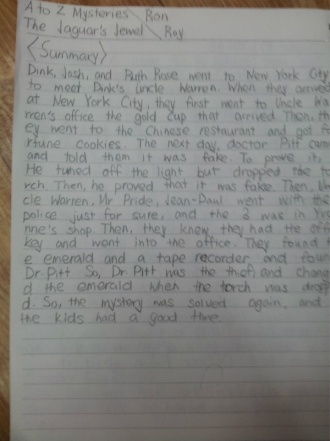 A to Z Mysteries \ Ron
The Jaguar's Jewel \ Roy
<Summary>
Dink, Josh, and Ruth Rose went to New York City
to meet Dink's Uncle Warren. When they arrived
at New York City, they first went to Uncle Wa
rren's office the gold cup that arrived Then, th
ey went to the Chinese restaurant and got fo
rtune cookies. The next day, doctor Pitt came
and told them it was fake. To prove it,
He turned off the light but dropped the to
rch. Then, he proved that it was fake. Then, Un
cle Warren, Mr Pride, Jean-Paul went with the
police just for sure, and the 3 was in Yvo
nne's shop. Then, they knew they had the off
key and went into the office. They found th
e emerald and a tape recorder, and foun
Dr. Pitt So, Dr Pitt was the thief, and change
d the emerald when the torch was dropp
d. So, the mystery was solved again, and
the kids had a good time.